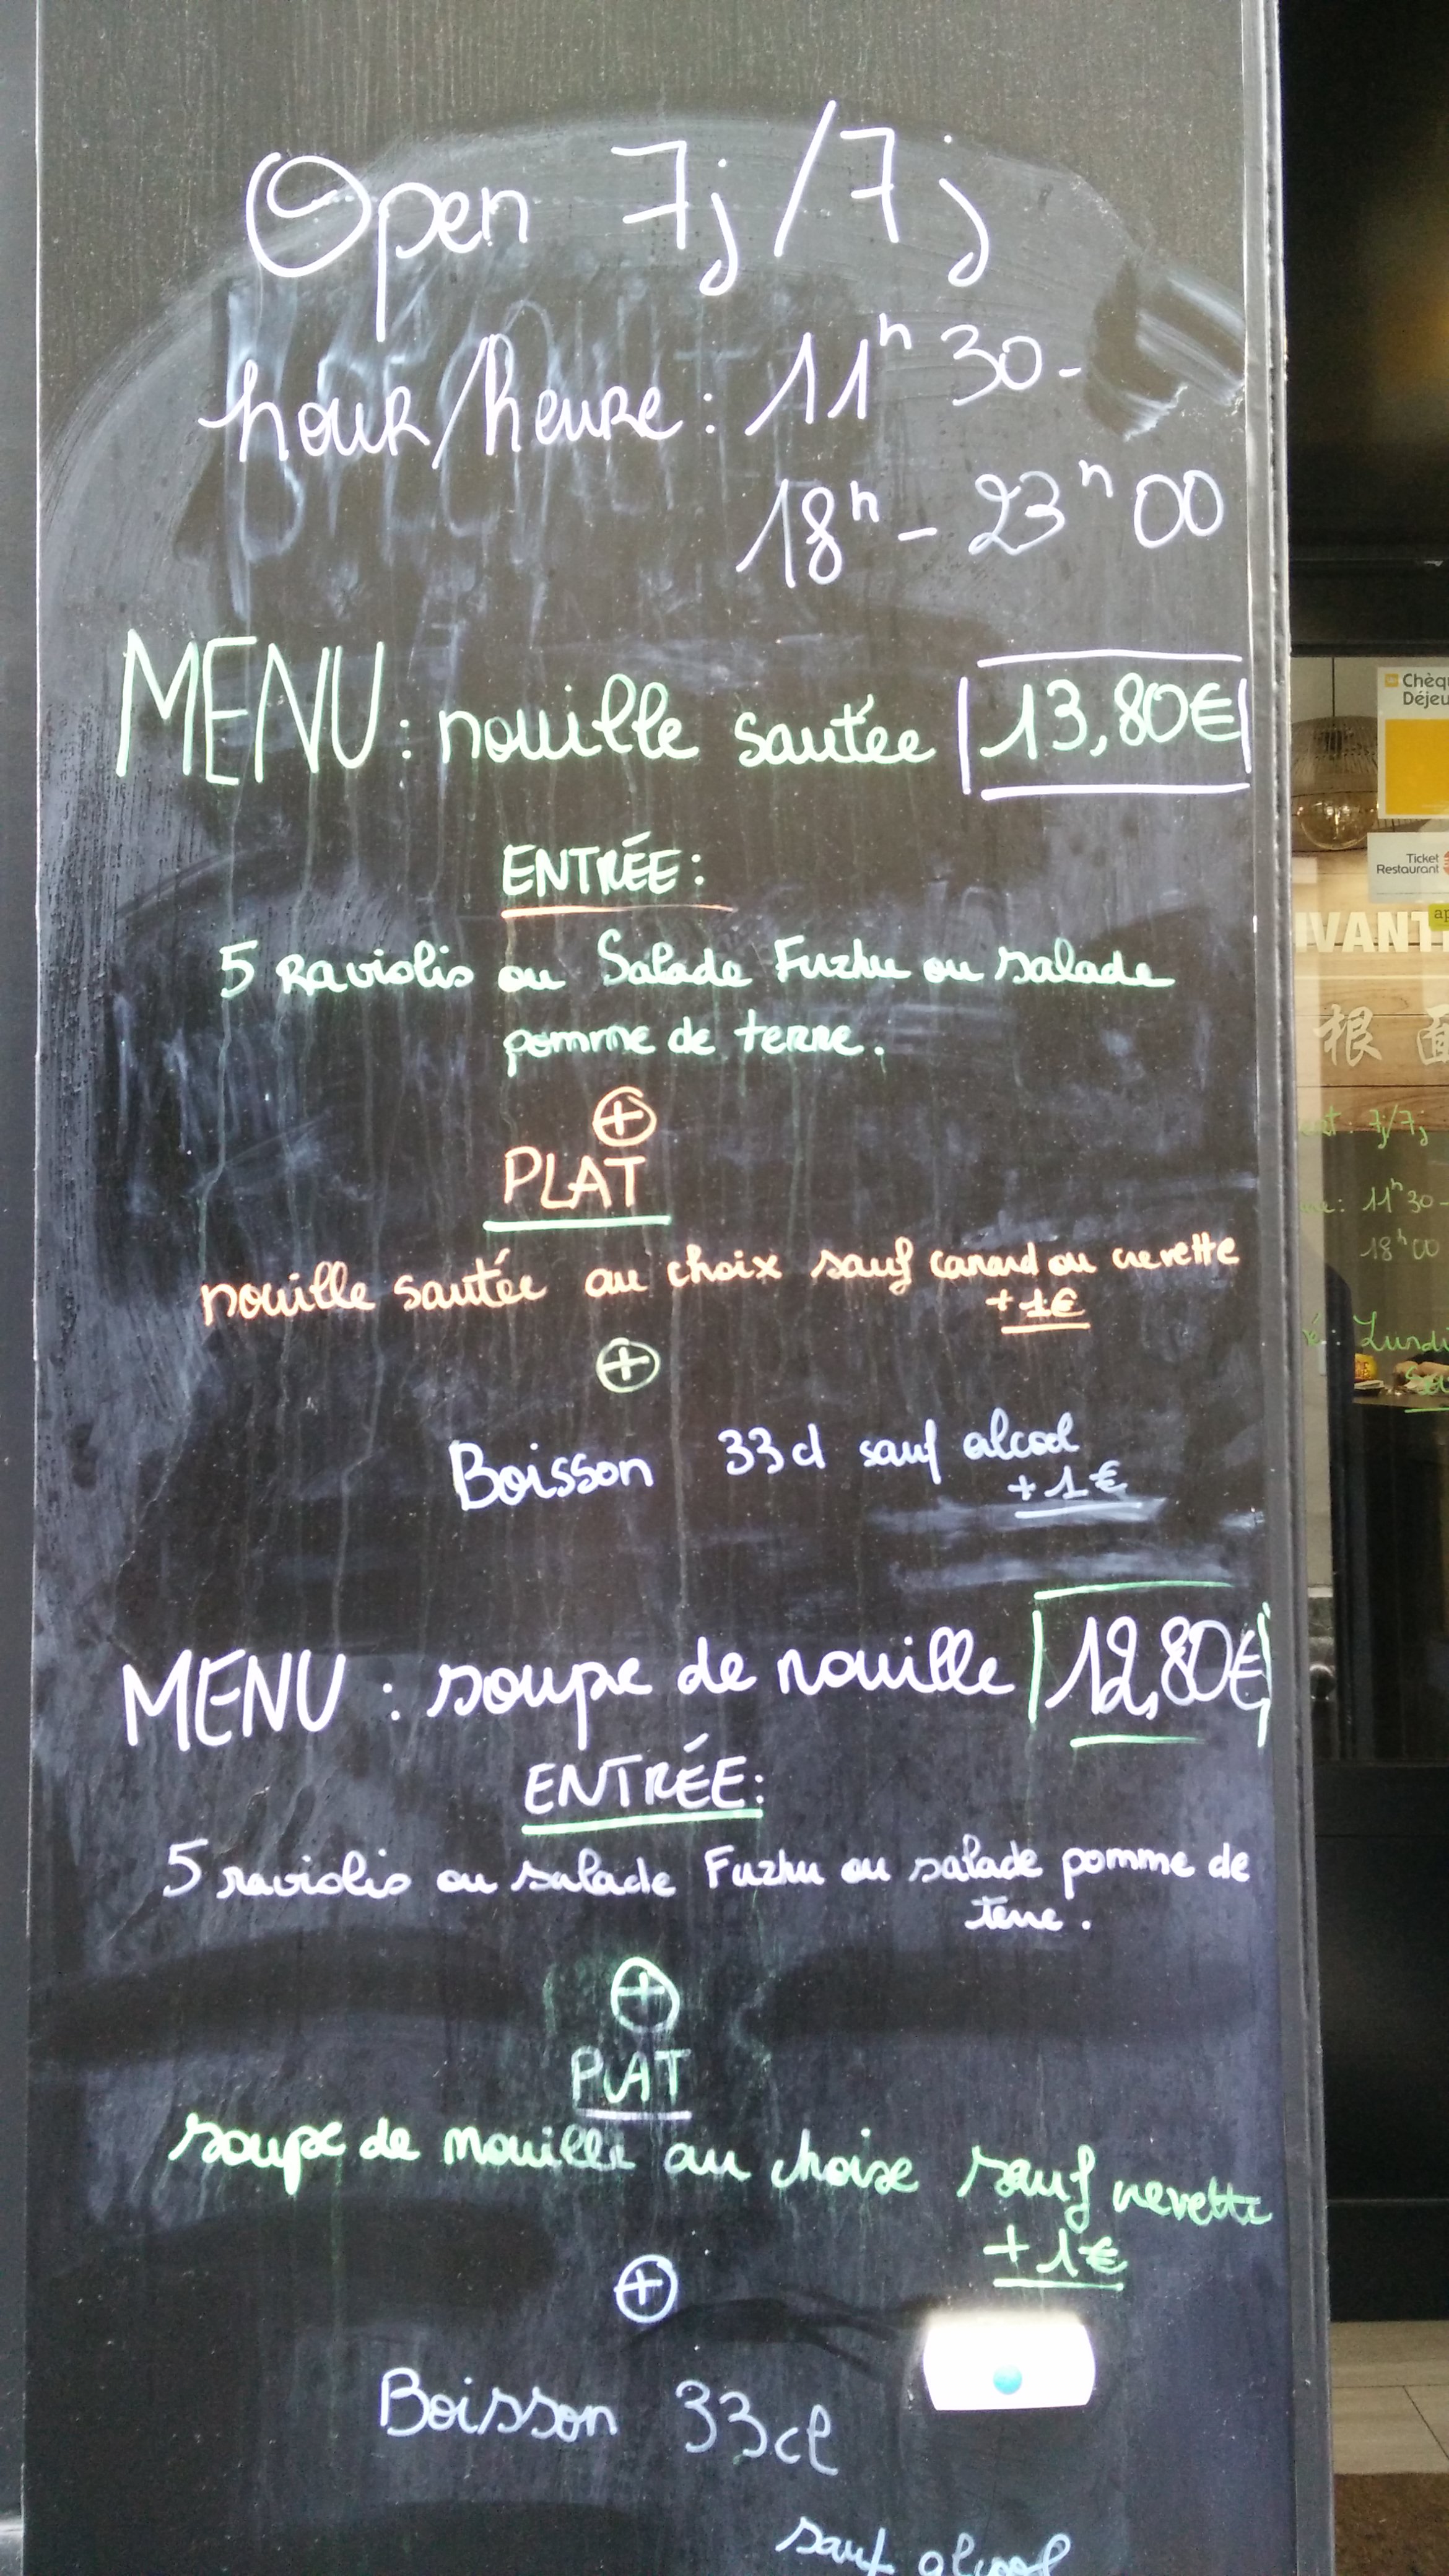 Open 7j/7j
hour/heure: 11h30-
18h - 23h00
MENU: nouille sautée 13,80€
ENTRÉE:
5 Raviolis ou Salade Fuzhu ou salade
pomme de terre.
+
PLAT
nouille sautée au choix sauf canard ou crevette
+1€
+
Boisson 33cl sauf alcool
+1€
MENU: soupe de nouille 12,80€
ENTRÉE:
5 raviolis ou salade Fuzhu ou salade pomme de
terre.
+
PLAT
soupe de nouille au choix sauf crevette
+1€
+
Boisson 33cl
sauf alcool
Chèq
Déjeu
Ticket
Restaurant
ap
IVANT
根 面
7j/7j
11h30-
18h00
Lundi